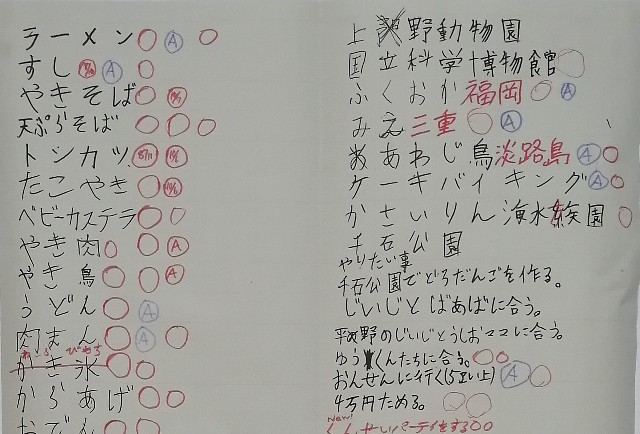 ラーメン
すし
やきそば
天ぷらそば
トンカツ
たこやき
ベビーカステラ
やき肉
やき鳥
うどん
肉まん
かき氷
からあげ
おでん
上野動物園
国立科学博物館
ふくおか福岡
みえ三重
あわじ鳥淡路島
ケーキバイキング
かさいりん海水族園
千石公園
やりたい事
千石公園でどろだんごを作る。
じいじとばあばに合う。
平野のじいじとうしおココに合う。
ゆうくんたちに合う。
おんせんに行く(5回以上)
4万円ためる。
New!
くんせいパーティをする